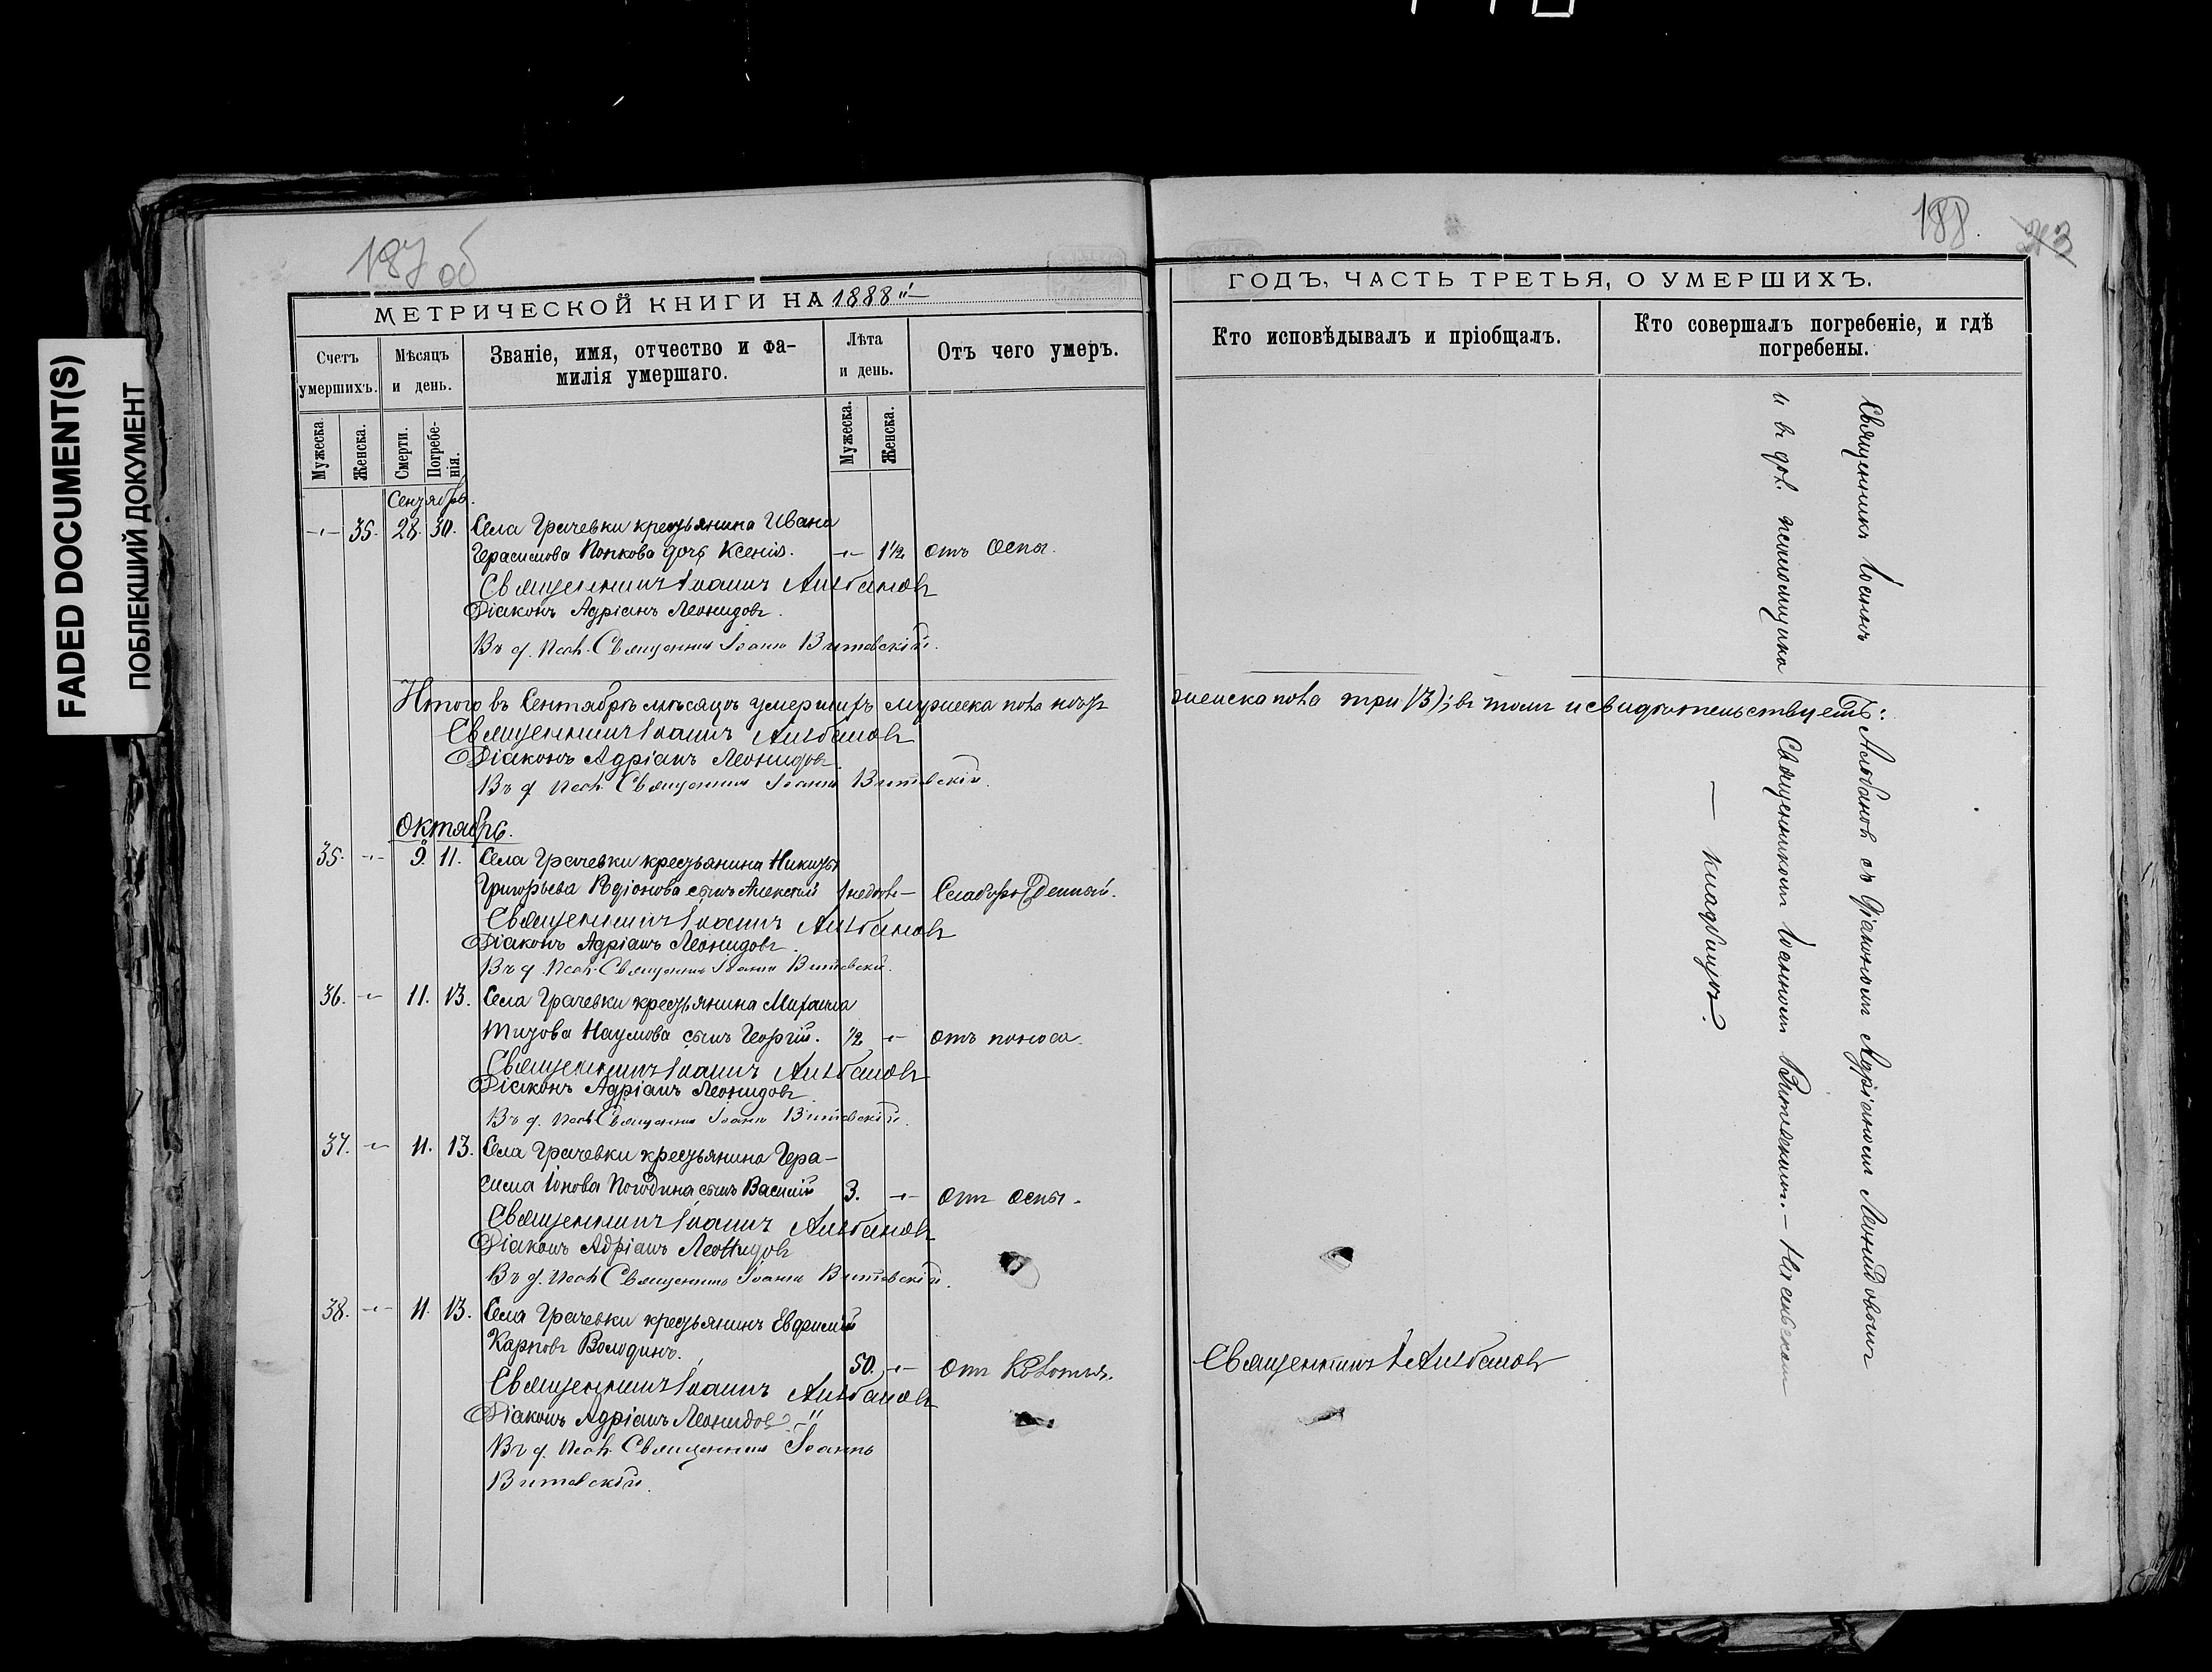 FADED DOCUMENT(S)
ПОБЛЕКШИЙ ДОКУМЕНТ
187 об
МЕТРИЧЕСКОЙ КНИГИ НА 1888
Счетъ умершихъ.
Мѣсяцъ и день.
Званіе, имя, отчество и фа-
милія умершаго.
Лѣта и день.
Отъ чего умеръ.
Мужеска.
Женска.
Смерти.
Погребе-
нія.
Мужеска.
Женска.
Сентябрь.
35. 28. 30. Села Грачевки крестьянина Ивана
Герасимова Попкова дочь Ксенія. 1½ отъ Оспы.
Священникъ Іоаннъ Альбановъ
Діаконъ Адріанъ Леонидовъ.
Въ д. Псал. Священникъ Іоаннъ Витевскій.
Итого въ Сентябрѣ мѣсяцѣ умершихъ мужеска пола
Священникъ Іоаннъ Альбановъ
Діаконъ Адріанъ Леонидовъ
Въ д. Псал. Священникъ Іоаннъ Витевскій.
Октябрь.
35. 9. 11. Села Грачевки крестьянина Никиты
Григорьева Родіонова сынъ Алексѣй Слаборожденный.
Священникъ Іоаннъ Альбановъ
Діаконъ Адріанъ Леонидовъ.
Въ д. Псал. Священникъ Іоаннъ Витевскій.
36. 11. 13. Села Грачевки крестьянина Михаила
Титова Наумова сынъ Георгій. ½ отъ поноса.
Священникъ Іоаннъ Альбановъ
Діаконъ Адріанъ Леонидовъ
Въ д. Псал. Священникъ Іоаннъ Витевскій.
37. 11. 13. Села Грачевки крестьянина Гера-
сима Іонова Погодина сынъ Василій 3. отъ оспы.
Священникъ Іоаннъ Альбановъ
Діаконъ Адріанъ Леонидовъ
Въ д. Псал. Священникъ Іоаннъ Витевскій.
38. 11. 13. Села Грачевки крестьянинъ Евфимій
Карповъ Володинъ. 50. отъ Колотья.
Священникъ Іоаннъ Альбановъ
Діаконъ Адріанъ Леонидовъ
Въ д. Псал. Священникъ Іоаннъ
Витевскій.
188.
ГОДЪ, ЧАСТЬ ТРЕТЬЯ, О УМЕРШИХЪ.
Кто исповѣдывалъ и пріобщалъ.
Кто совершалъ погребеніе, и гдѣ
погребены.
женска пола три (3); въ томъ и свидѣтельствуетъ:
Священникъ І Альбановъ
Священникъ Іоаннъ Альбановъ съ Діакономъ Адріаномъ Леонидовымъ
и въ дол. псаломщика Священникомъ Іоанномъ Витевскимъ. —
— кладбищѣ.